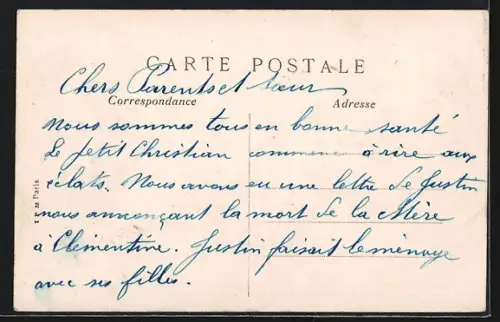 CARTE POSTALE
Chers Parents et sœur
Correspondance Adresse
Nous sommes tous en bonne santé
Le petit Christian commence à rire aux
éclats. Nous avons eu une lettre de Justin
nous annonçant la mort de la Mère
à Clémentine. Justin faisait le ménage
avec ses filles.
Paris